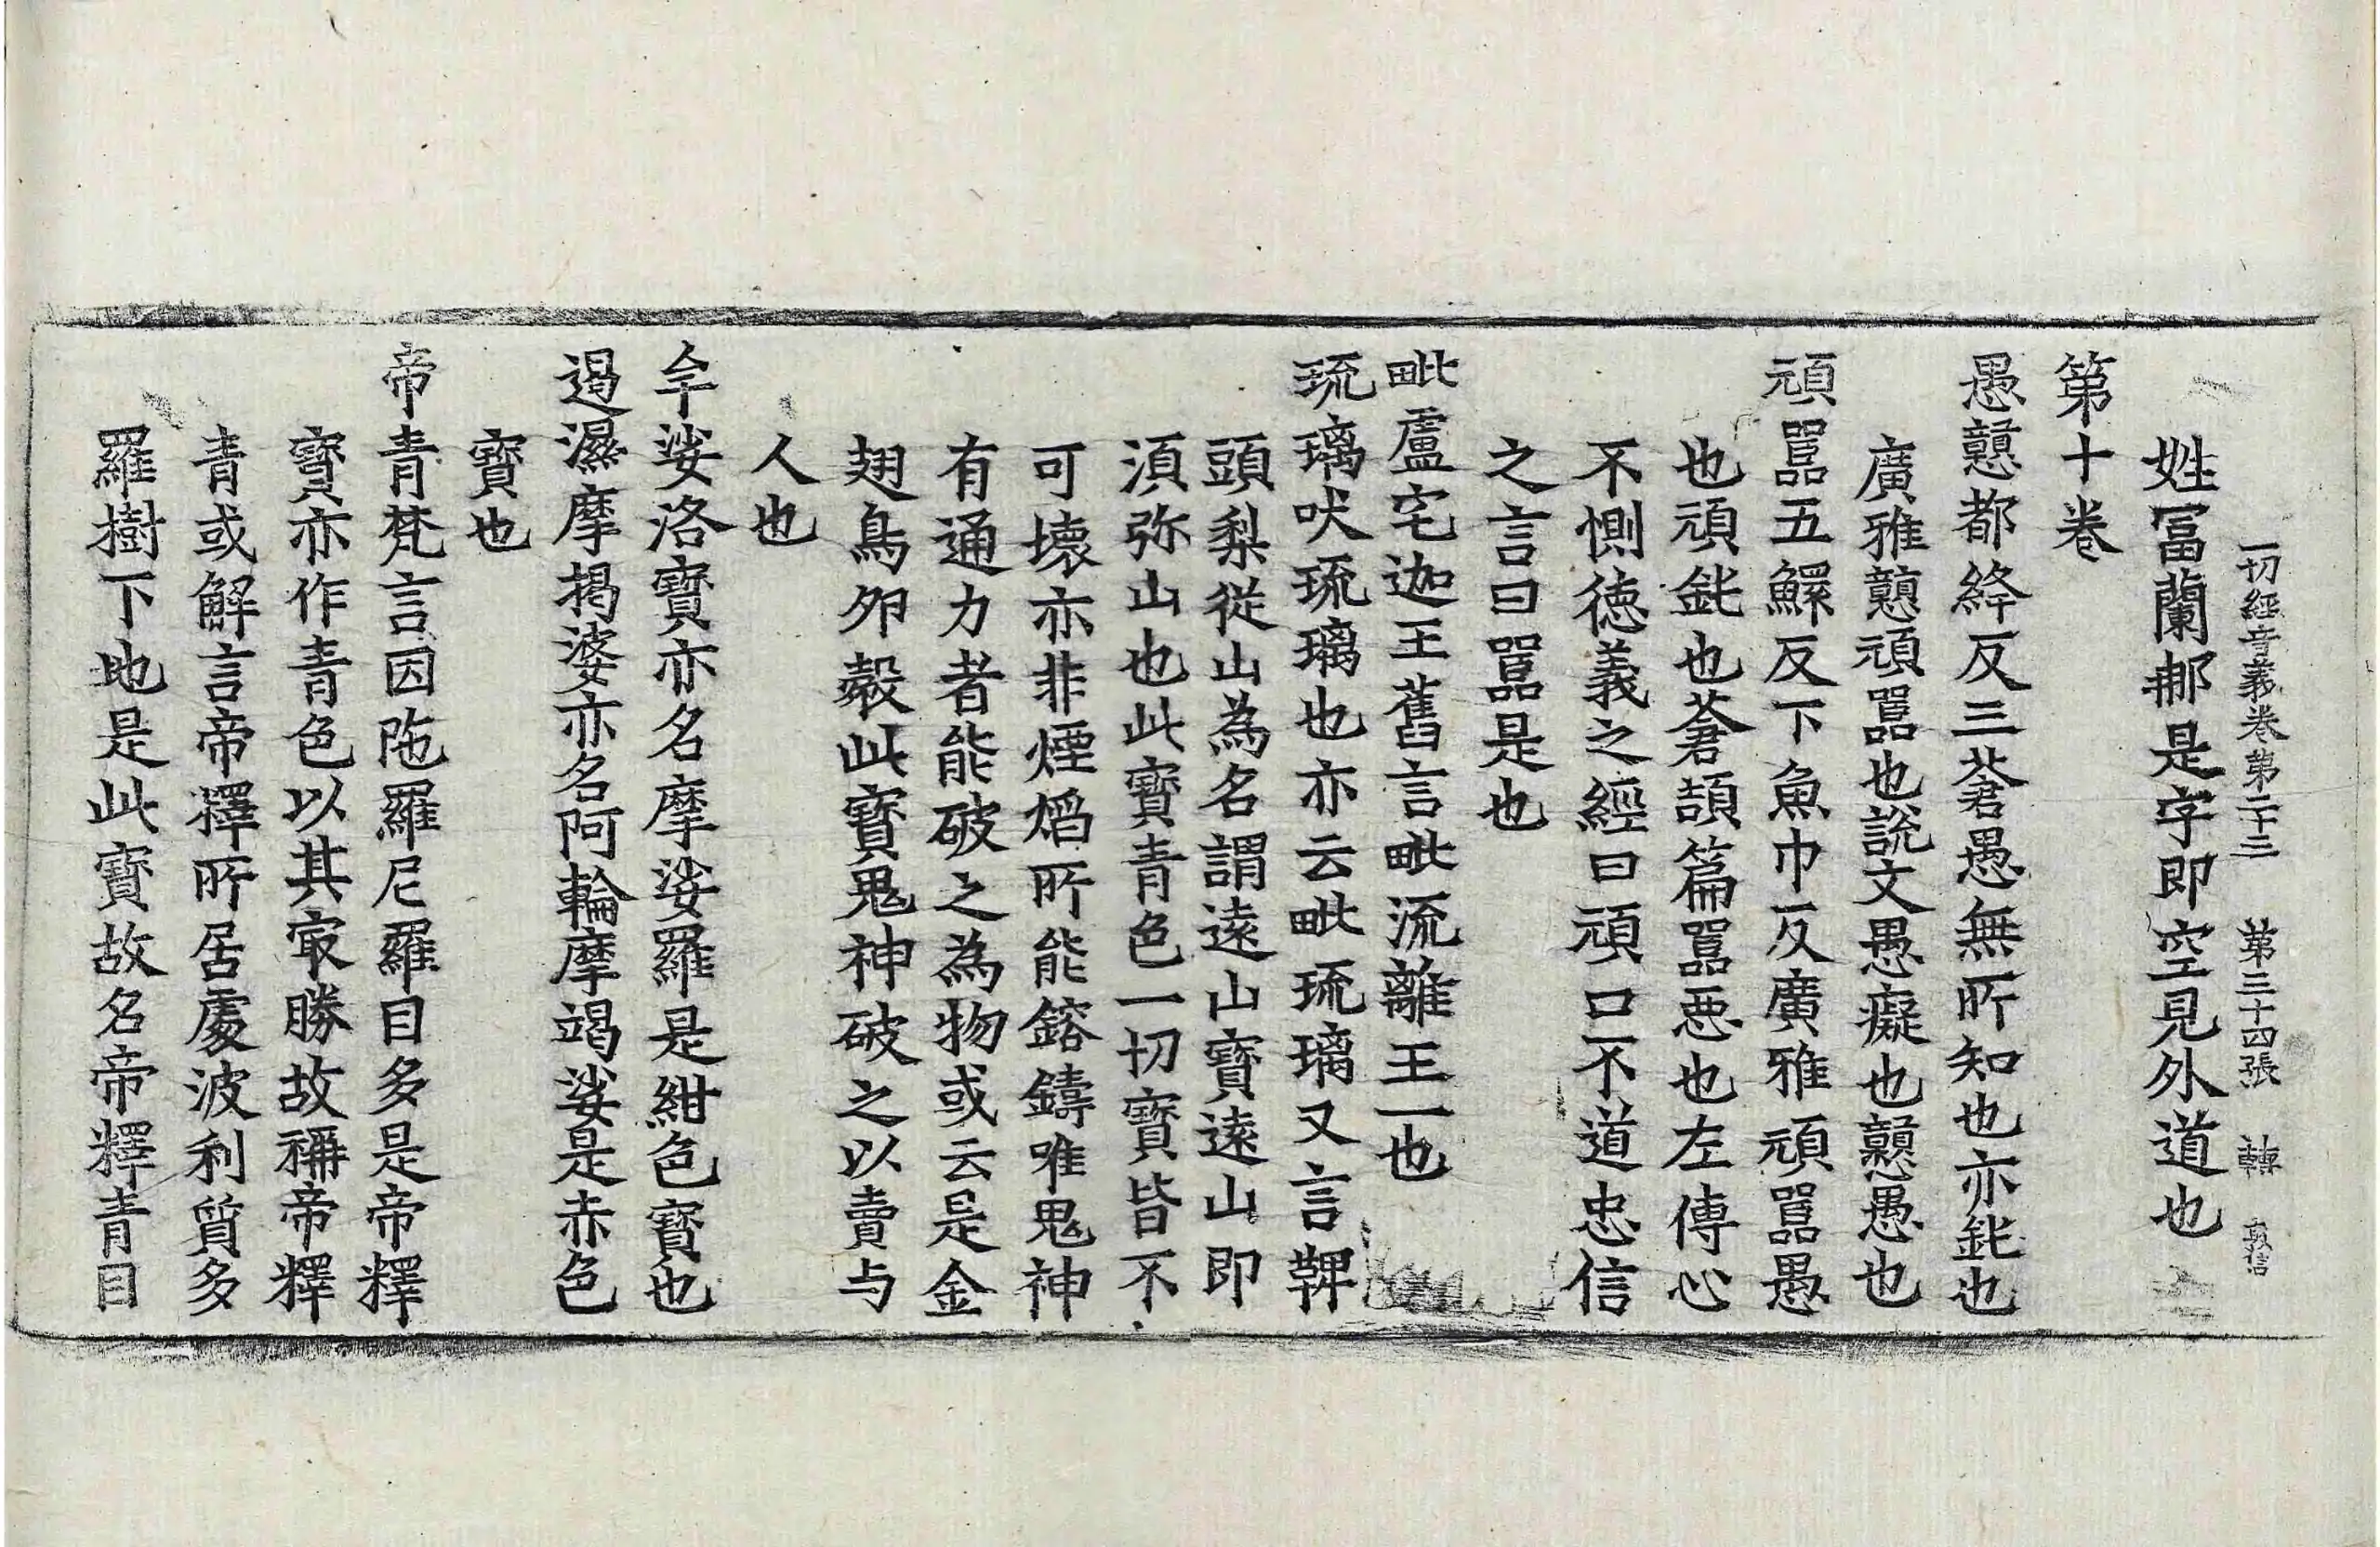 一切經音義卷第二十三 第三十四張 轉 敦信
姓冨蘭那是字即空見外道也
第十卷
愚戇都絳反三蒼愚無所知也亦鈍也
廣雅戇頑嚚也說文愚癡也戇愚也
頑嚚五鰥反下魚巾反廣雅頑嚚愚
也頑鈍也蒼頡篇嚚惡也左傳心
不惻德義之經曰頑口不道忠信
之言曰嚚是也
毗盧宅迦王舊言毗流離王一也
琉璃吠琉璃也亦云毗琉璃又言鞞
頭梨從山為名謂遠山寶遠山即
湏弥山也此寶青色一切寶皆不
可壞亦非煙焰所能鎔鑄唯鬼神
有通力者能破之為物或云是金
翅鳥卵㲉此寶鬼神破之以賣与
人也
牟娑洛寶亦名摩娑羅是紺色寶也
遏濕摩揭婆亦名阿輪摩竭娑是赤色
寶也
帝青梵言因陁羅尼羅目多是帝釋
寶亦作青色以其冣勝故稱帝釋
青或解言帝釋所居處波利質多
羅樹下地是此寶故名帝釋青目